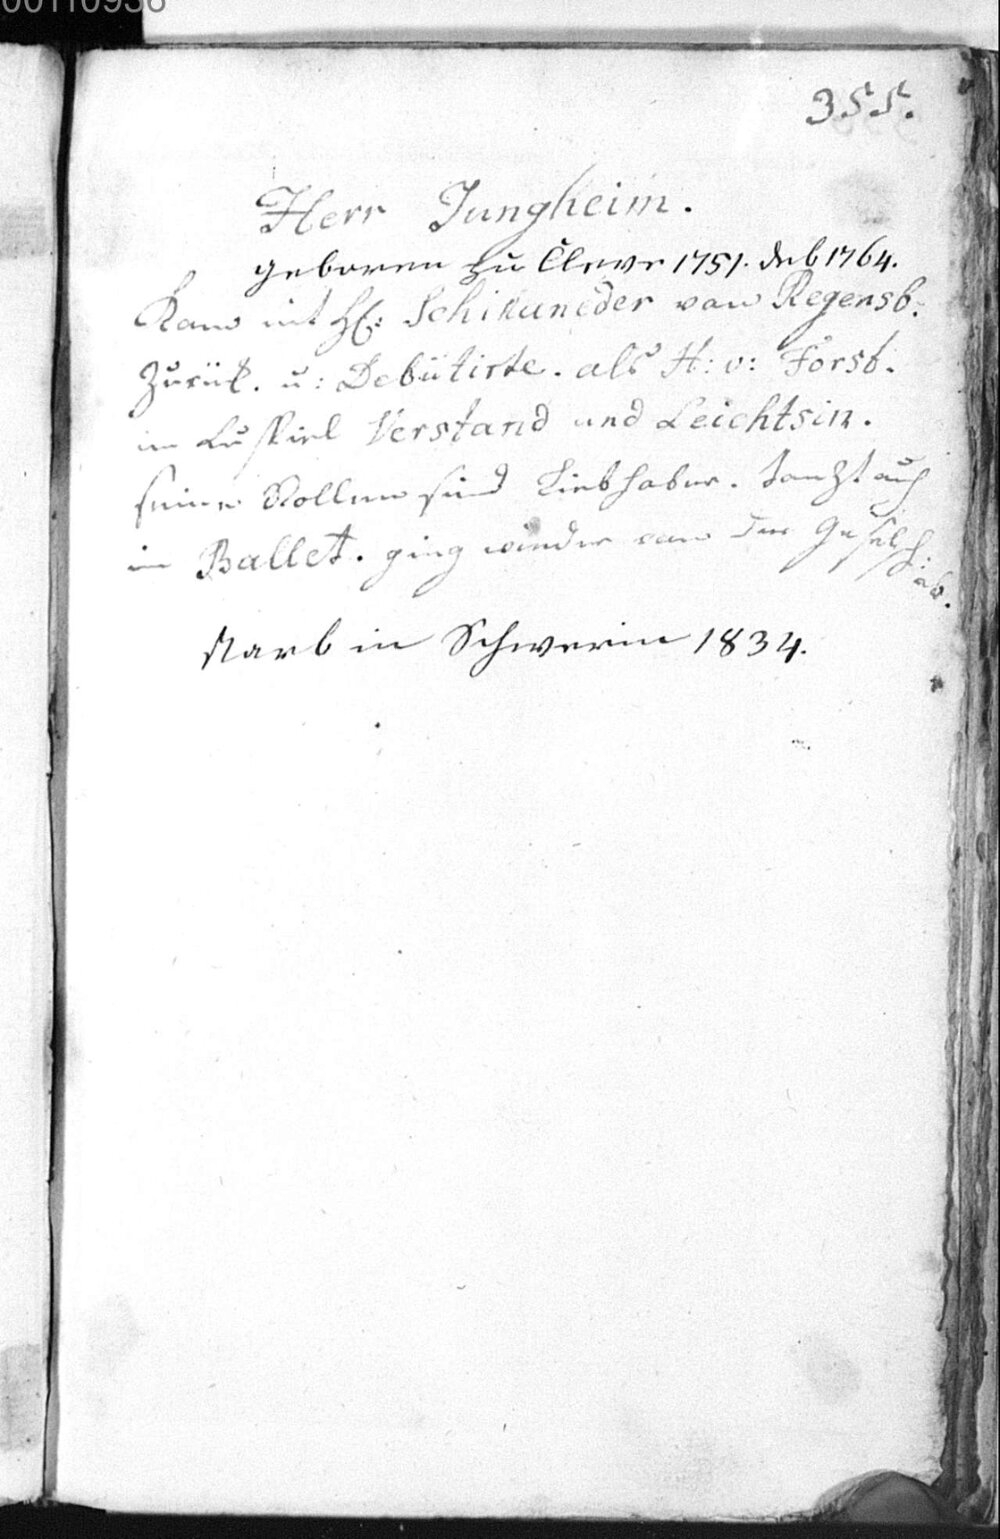 00110936
355.
Herr Jungheim.
geboren zu Cleve 1751. deb 1764.
Kam mit H: Schikaneder von Regensb:
Zurük. u: Debütirte. als H: v: Forst.
im Lustspiel Verstand und Leichtsin.
seine Rollen sind Liebhaber. Tanzt auch
im Ballet. ging wieder von der Geselsch:
ab.
starb in Schwerin 1834.